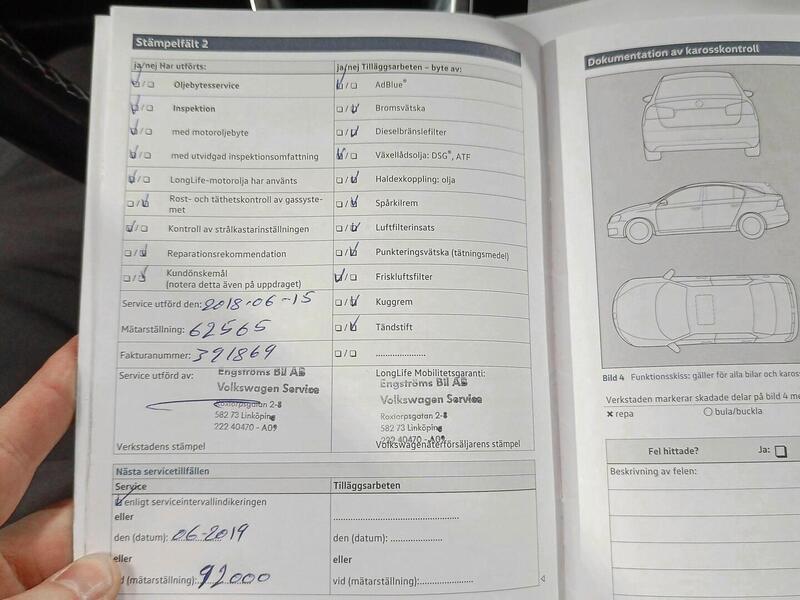 Stämpelfält 2
ja/nej Har utförts:
Oljebytesservice
Inspektion
med motoroljebyte
med utvidgad inspektionsomfattning
LongLife-motorolja har använts
Rost- och täthetskontroll av gassyste-
met
Kontroll av strålkastarinställningen
Reparationsrekommendation
Kundönskemål
(notera detta även på uppdraget)
Service utförd den: 2018-06-15
Mätarställning: 62565
Fakturanummer: 391869
Service utförd av:
Engströms Bil AB
Volkswagen Service
Roxtorpsgatan 2-8
582 73 Linköping
222 40470 - A09
Verkstadens stämpel
ja/nej Tilläggsarbeten – byte av:
AdBlue®
Bromsvätska
Dieselbränslefilter
Växellådsolja: DSG®, ATF
Haldexkoppling: olja
Spårkilrem
Luftfilterinsats
Punkteringsvätska (tätningsmedel)
Friskluftsfilter
Kuggrem
Tändstift
LongLife Mobilitetsgaranti:
Engströms Bil AB
Volkswagen Service
Roxtorpsgatan 2-8
582 73 Linköping
222 40470 - A09
Volkswagenåterförsäljarens stämpel
Nästa servicetillfällen
Service
enligt serviceintervallindikeringen
eller
den (datum): 06-2019
eller
(mätarställning): 92000
Tilläggsarbeten
den (datum):
eller
vid (mätarställning):
Dokumentation av karosskontroll
Bild 4 Funktionsskiss: gäller för alla bilar och
Verkstaden markerar skadade delar på bild 4
× repa
bula/buckla
Fel hittade?
Ja:
Beskrivning av felen: